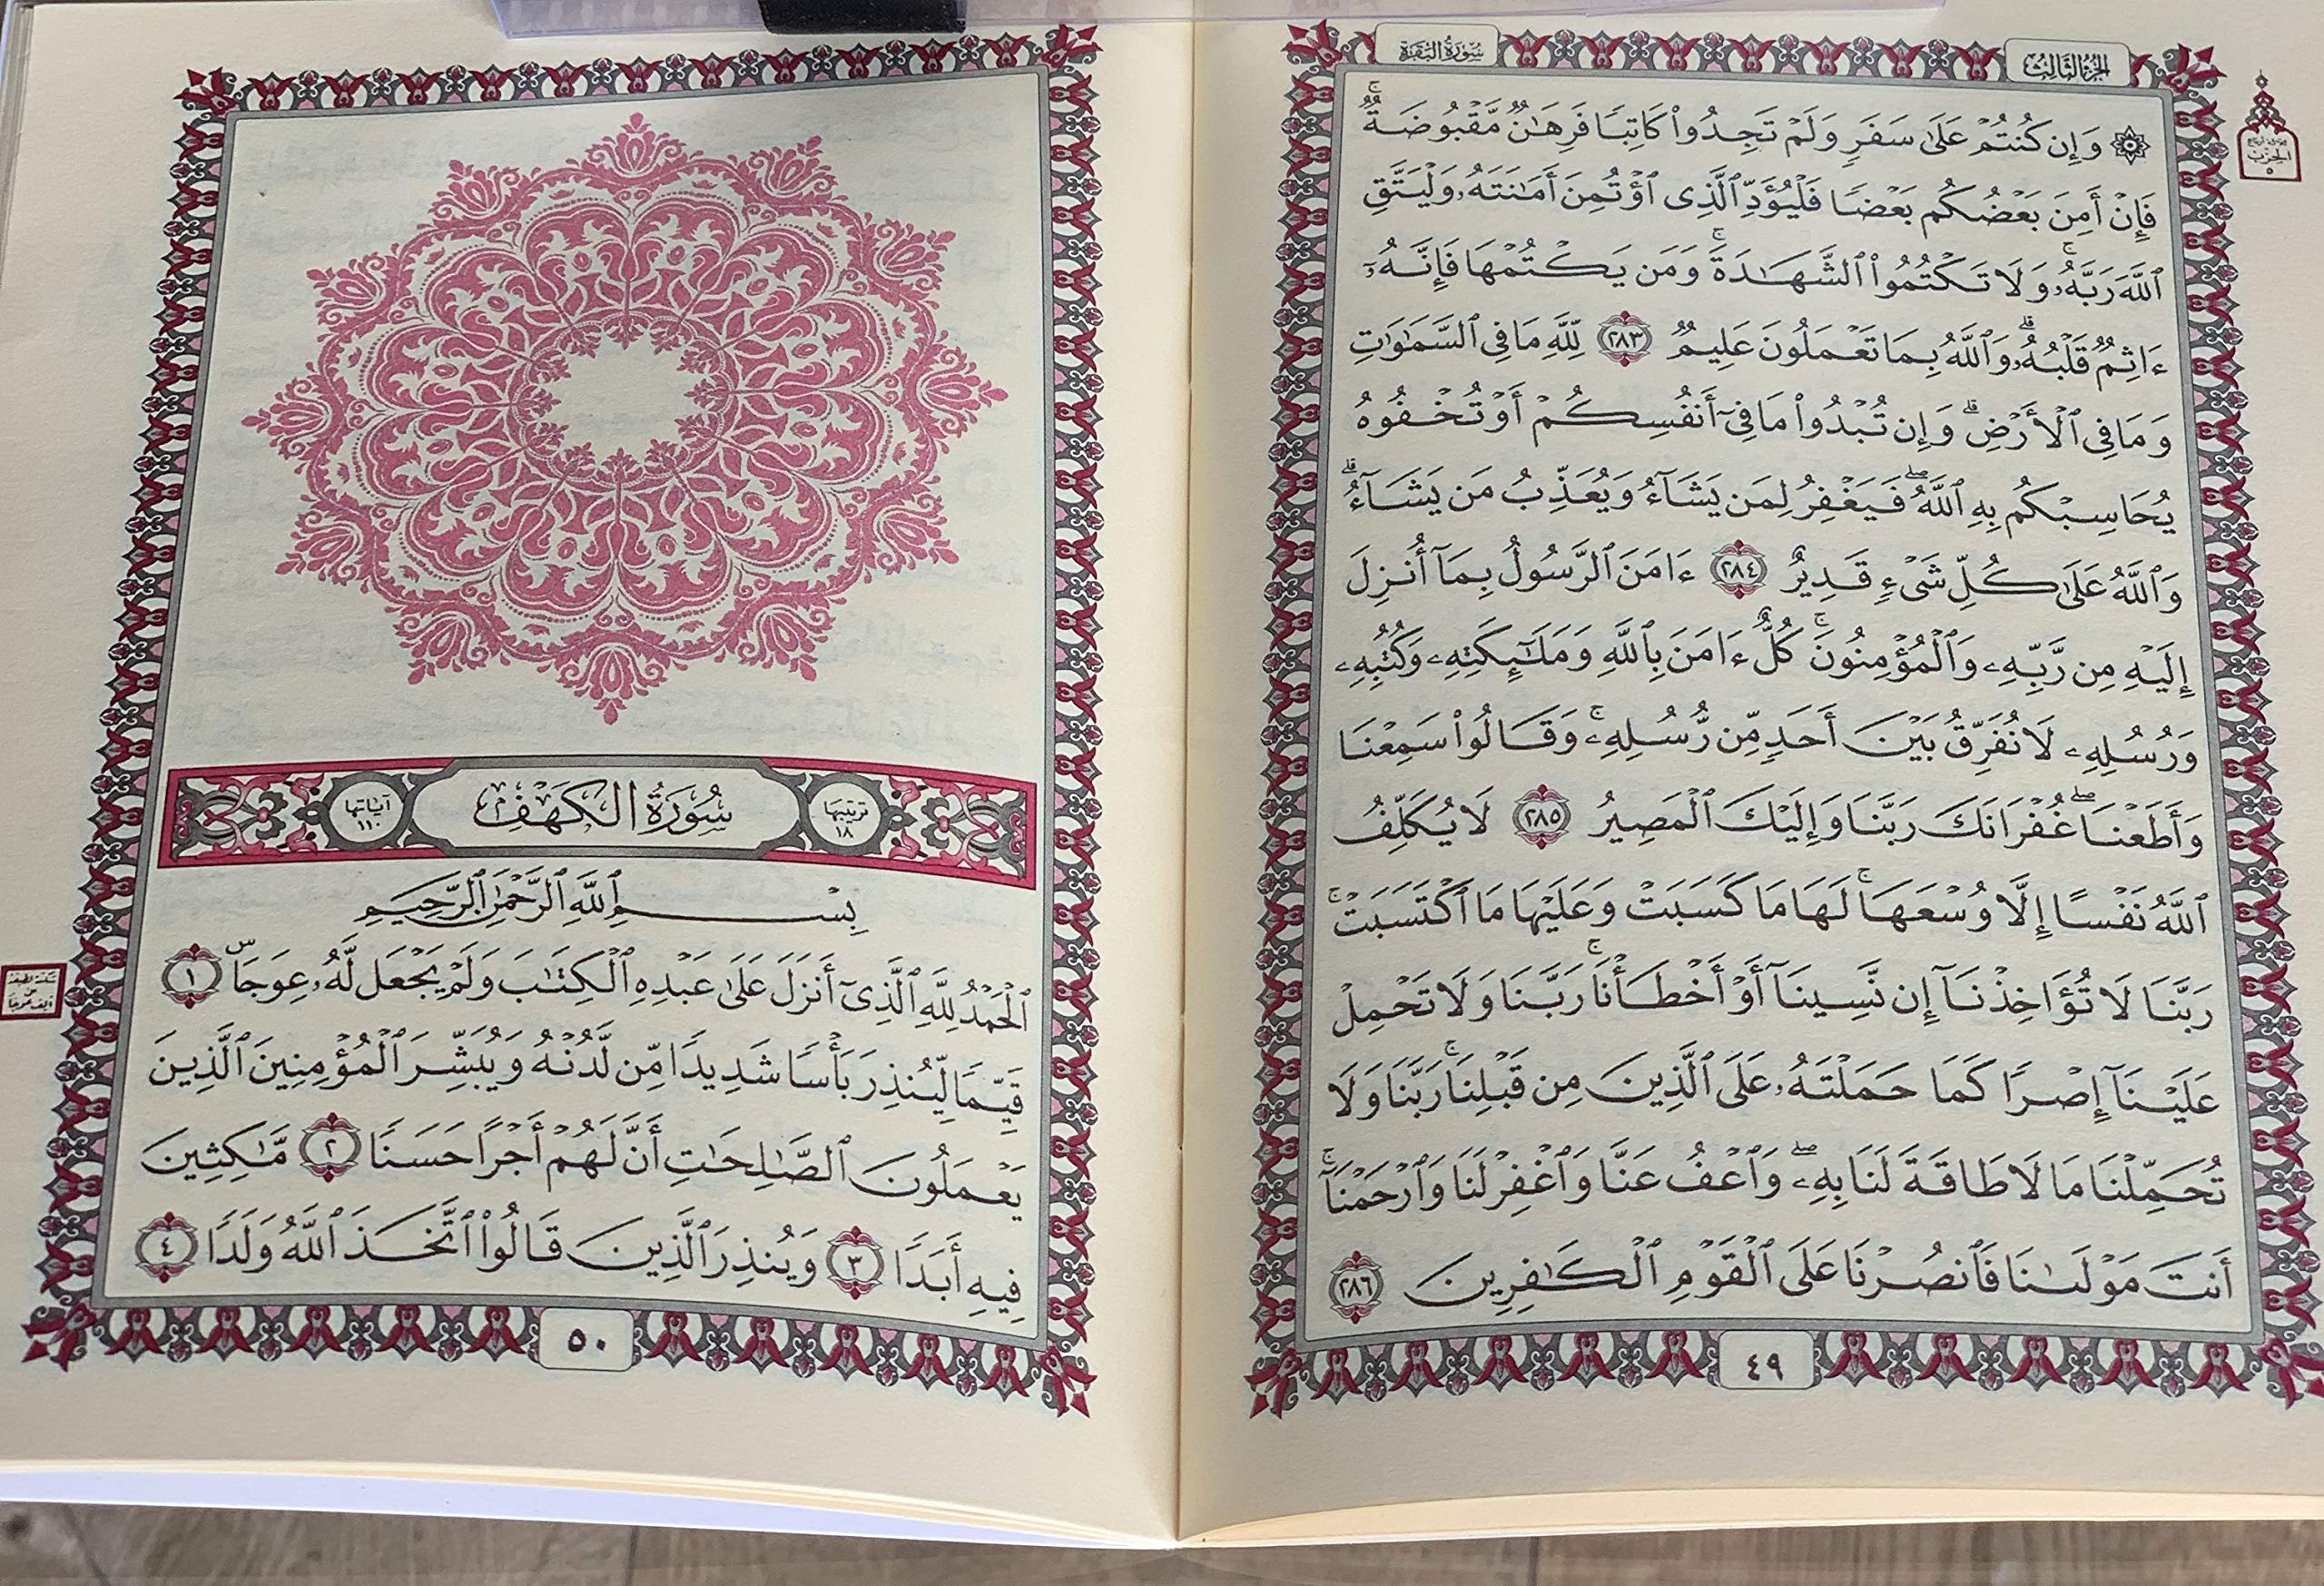 الجزء الثالث
سورة البقرة
۞ وَإِن كُنتُمْ عَلَىٰ سَفَرٍ وَلَمْ تَجِدُوا۟ كَاتِبًا فَرِهَـٰنٌ مَّقْبُوضَةٌ ۖ
فَإِنْ أَمِنَ بَعْضُكُم بَعْضًا فَلْيُؤَدِّ ٱلَّذِى ٱؤْتُمِنَ أَمَـٰنَتَهُۥ وَلْيَتَّقِ
ٱللَّهَ رَبَّهُۥ ۗ وَلَا تَكْتُمُوا۟ ٱلشَّهَـٰدَةَ ۚ وَمَن يَكْتُمْهَا فَإِنَّهُۥٓ
ءَاثِمٌ قَلْبُهُۥ ۗ وَٱللَّهُ بِمَا تَعْمَلُونَ عَلِيمٌ ٢٨٣ لِّلَّهِ مَا فِى ٱلسَّمَـٰوَٰتِ
وَمَا فِى ٱلْأَرْضِ ۗ وَإِن تُبْدُوا۟ مَا فِىٓ أَنفُسِكُمْ أَوْ تُخْفُوهُ
يُحَاسِبْكُم بِهِ ٱللَّهُ ۖ فَيَغْفِرُ لِمَن يَشَآءُ وَيُعَذِّبُ مَن يَشَآءُ ۗ
وَٱللَّهُ عَلَىٰ كُلِّ شَىْءٍ قَدِيرٌ ٢٨٤ ءَامَنَ ٱلرَّسُولُ بِمَآ أُنزِلَ
إِلَيْهِ مِن رَّبِّهِۦ وَٱلْمُؤْمِنُونَ ۚ كُلٌّ ءَامَنَ بِٱللَّهِ وَمَلَـٰٓئِكَتِهِۦ وَكُتُبِهِۦ
وَرُسُلِهِۦ لَا نُفَرِّقُ بَيْنَ أَحَدٍ مِّن رُّسُلِهِۦ ۚ وَقَالُوا۟ سَمِعْنَا
وَأَطَعْنَا ۖ غُفْرَانَكَ رَبَّنَا وَإِلَيْكَ ٱلْمَصِيرُ ٢٨٥ لَا يُكَلِّفُ
ٱللَّهُ نَفْسًا إِلَّا وُسْعَهَا ۚ لَهَا مَا كَسَبَتْ وَعَلَيْهَا مَا ٱكْتَسَبَتْ ۗ
رَبَّنَا لَا تُؤَاخِذْنَآ إِن نَّسِينَآ أَوْ أَخْطَأْنَا ۚ رَبَّنَا وَلَا تَحْمِلْ
عَلَيْنَآ إِصْرًا كَمَا حَمَلْتَهُۥ عَلَى ٱلَّذِينَ مِن قَبْلِنَا ۚ رَبَّنَا وَلَا
تُحَمِّلْنَا مَا لَا طَاقَةَ لَنَا بِهِۦ ۖ وَٱعْفُ عَنَّا وَٱغْفِرْ لَنَا وَٱرْحَمْنَآ ۚ
أَنتَ مَوْلَىٰنَا فَٱنصُرْنَا عَلَى ٱلْقَوْمِ ٱلْكَـٰفِرِينَ ٢٨٦
٤٩
ترتيبها ١٨
سُورَةُ الكَهْفِ
آياتها ١١٠
بِسْمِ ٱللَّهِ ٱلرَّحْمَـٰنِ ٱلرَّحِيمِ
ٱلْحَمْدُ لِلَّهِ ٱلَّذِىٓ أَنزَلَ عَلَىٰ عَبْدِهِ ٱلْكِتَـٰبَ وَلَمْ يَجْعَل لَّهُۥ عِوَجَا ۜ ١
قَيِّمًا لِّيُنذِرَ بَأْسًا شَدِيدًا مِّن لَّدُنْهُ وَيُبَشِّرَ ٱلْمُؤْمِنِينَ ٱلَّذِينَ
يَعْمَلُونَ ٱلصَّـٰلِحَـٰتِ أَنَّ لَهُمْ أَجْرًا حَسَنًا ٢ مَّـٰكِثِينَ
فِيهِ أَبَدًا ٣ وَيُنذِرَ ٱلَّذِينَ قَالُوا۟ ٱتَّخَذَ ٱللَّهُ وَلَدًا ٤
٥٠